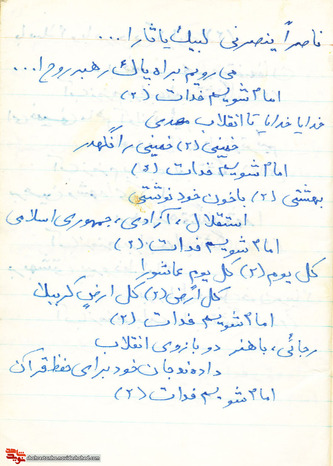 ناصراً ینصرنی لبیک یا ثارا...
می رویم براه پاک رهبر روح ا...
اماما شویم فدات (۲)
خدایا خدایا تا انقلاب مهدی
خمینی (۲) خمینی را نگهدر
اماما شویم فدات (۲)
بهشتی (۲) با خون خود نوشتی
استقلال، آزادی، جمهوری اسلامی
اماما شویم فدات (۲)
کل یوم (۲) کل یوم عاشورا
کل ارض (۲) کل ارض کربلا
اماما شویم فدات (۲)
رجائی، باهنر دو بازوی انقلاب
داده اند جان خود برای حفظ قرآن
اماما شویم فدات (۲)